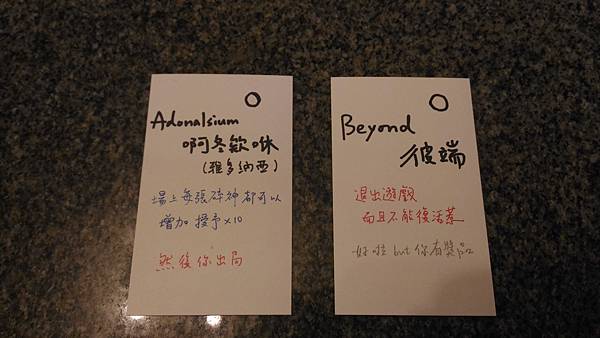 Adonalsium
啊冬歡咻
(雅多納西)
場上每張碎神都可以
增加 授予×10
然後你出局
Beyond
彼端
退出遊戲
而且不能復活惹
好啦 but 你有獎品